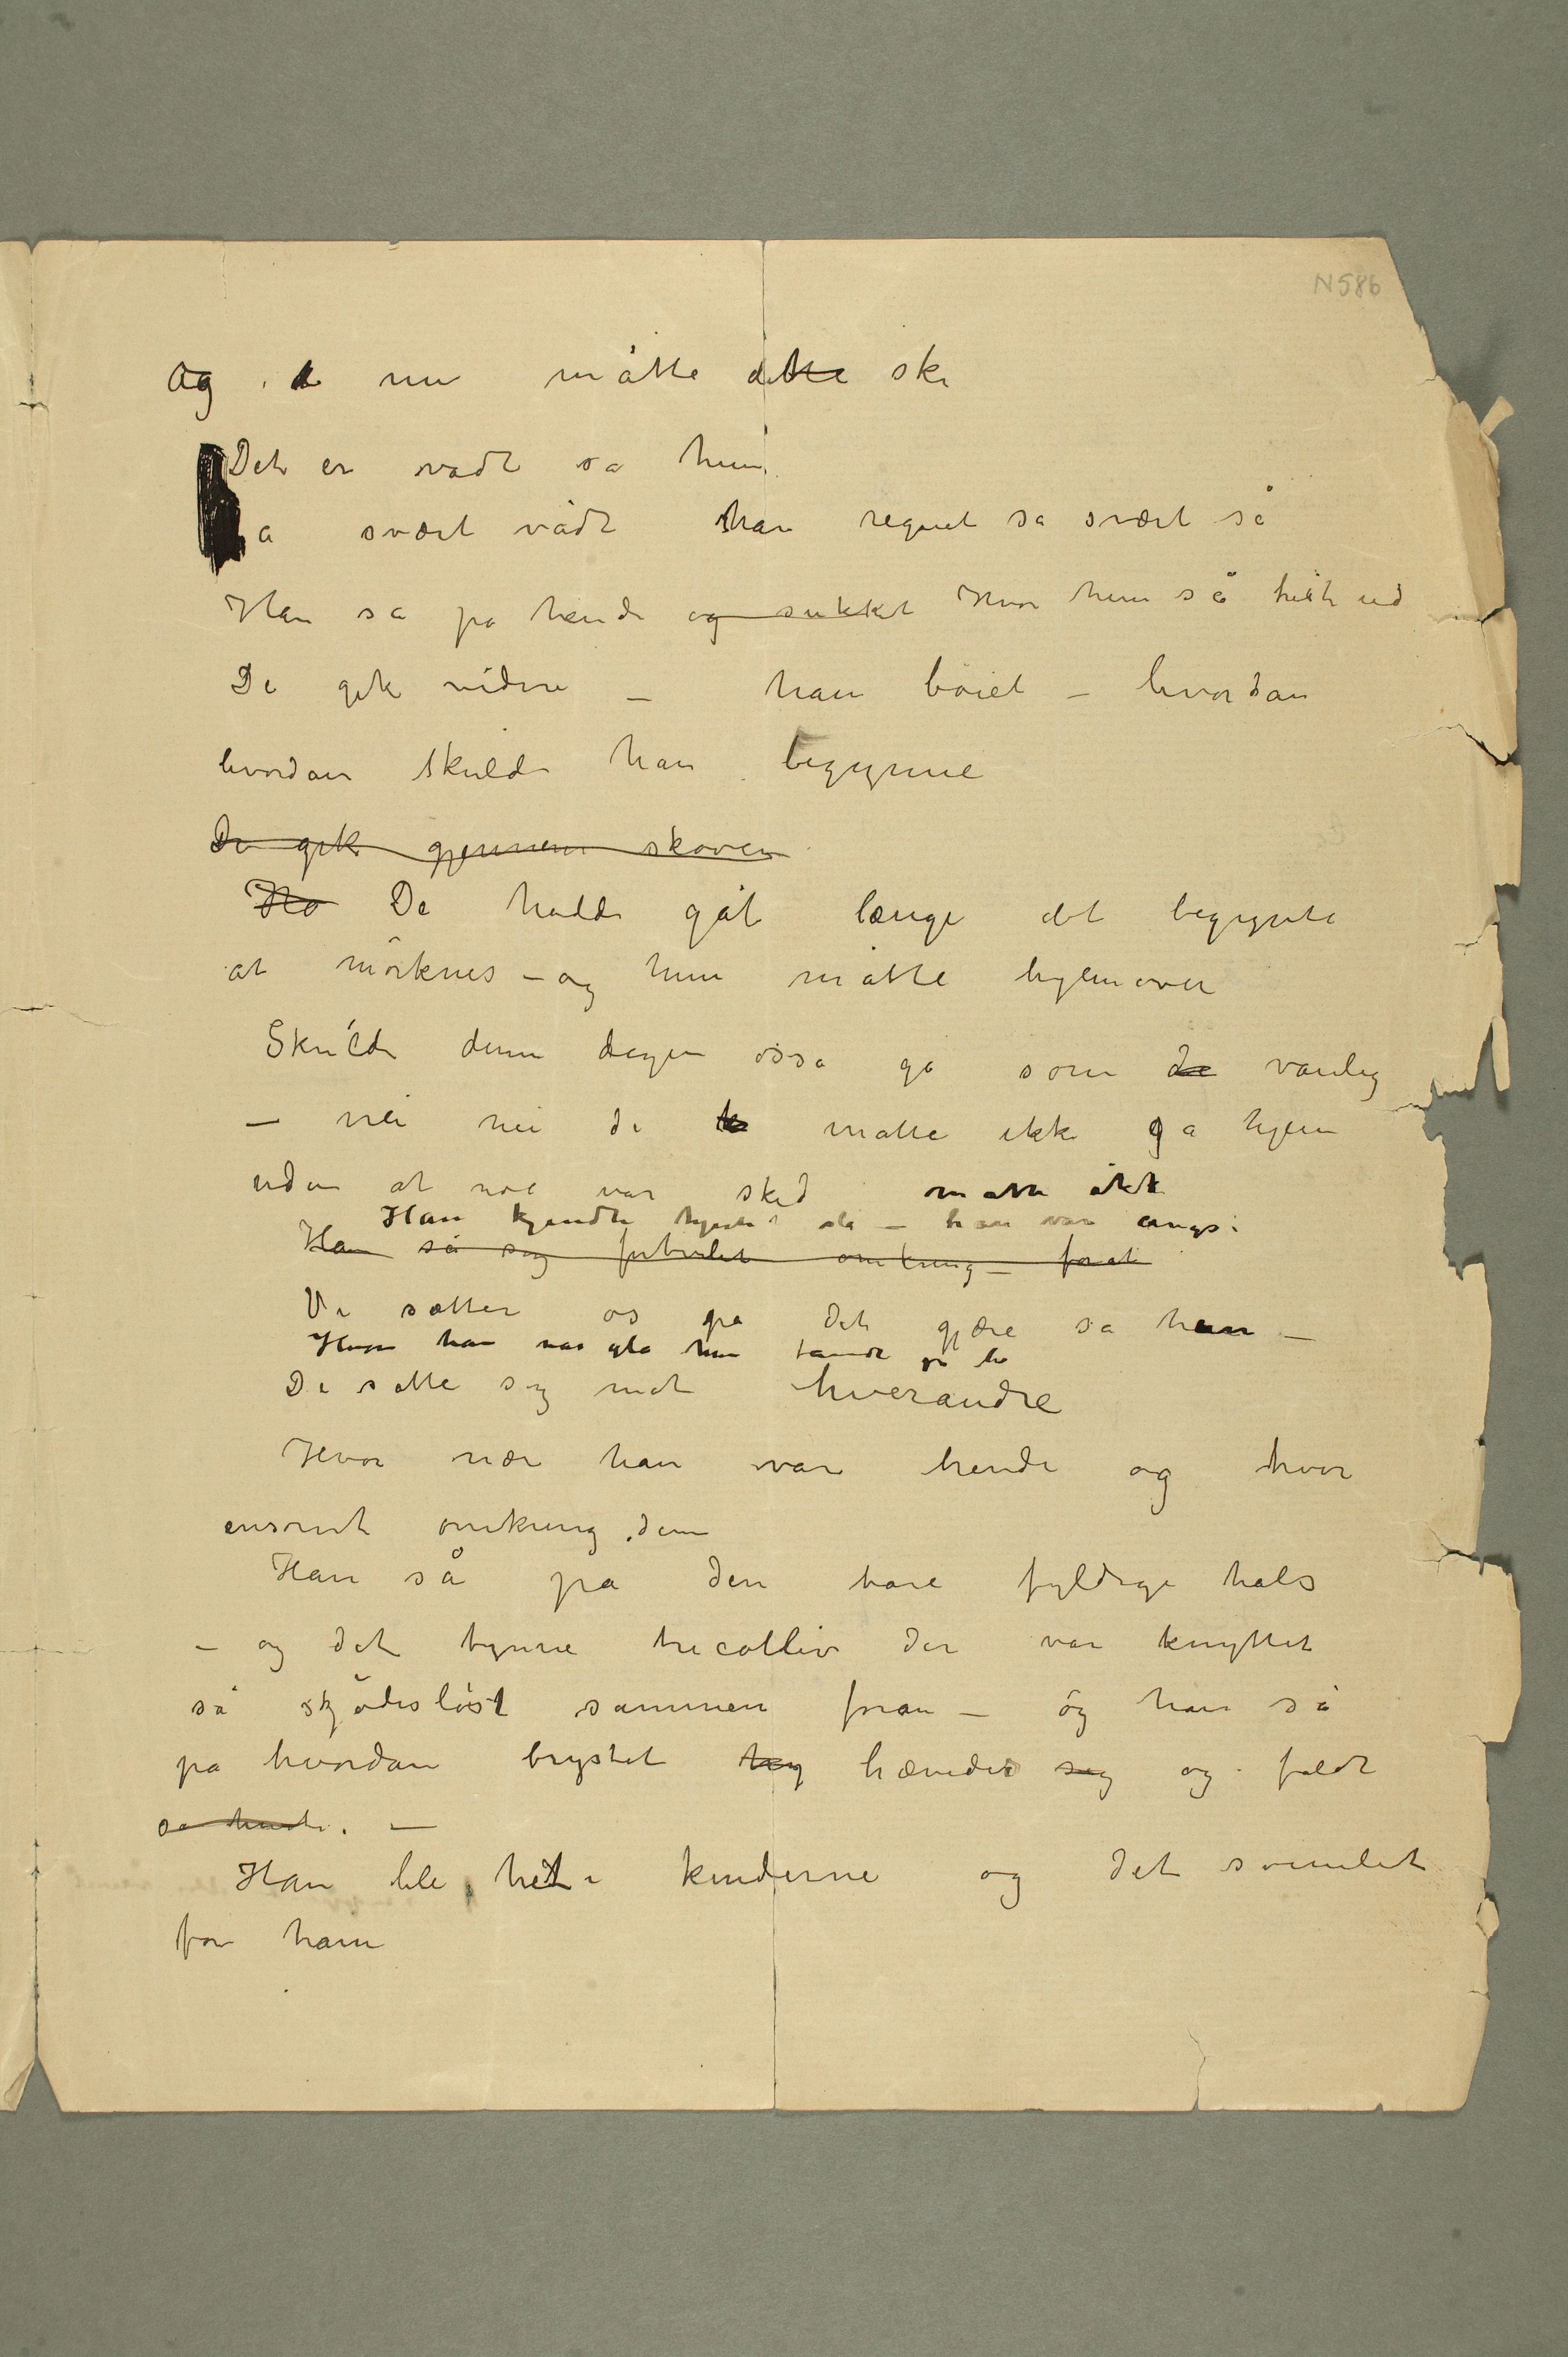 N 586
Og nu måtte dette ske
Det er vådt sa hun
a svært vådt har regnet sa svært så
Han så på hende og sukket Hvor hun så hæit ud
De gik videre — han bøiet — hvordan
hvordan skulde han begynne
De gik gjennem skoven
Ho De hadde gåt længe det begynte
at mörknes — og hun måtte hjemover
Skulde denne dagen osså gå som de vanlig
— nei nei de måtte ikke gå hjem
uden at noe var sked måtte ikke
Han kjendte hjertet slå — han var angst
Han så sig fortvilet omkring — for at
Vi sætter os på det gjære sa han —
Hvor han var gla hun
De satte sig mot hverandre
Hvor nær han var hende og hvor
ensomt omkring dem
Han så på den bare fyldige hals
— og det tynne tricotliv der var knyttet
så skjödeslöst sammen foran — og han så
på hvordan brystet hævedes sig og faldt
—
Han ble het i kinderne og det svimlet
for ham